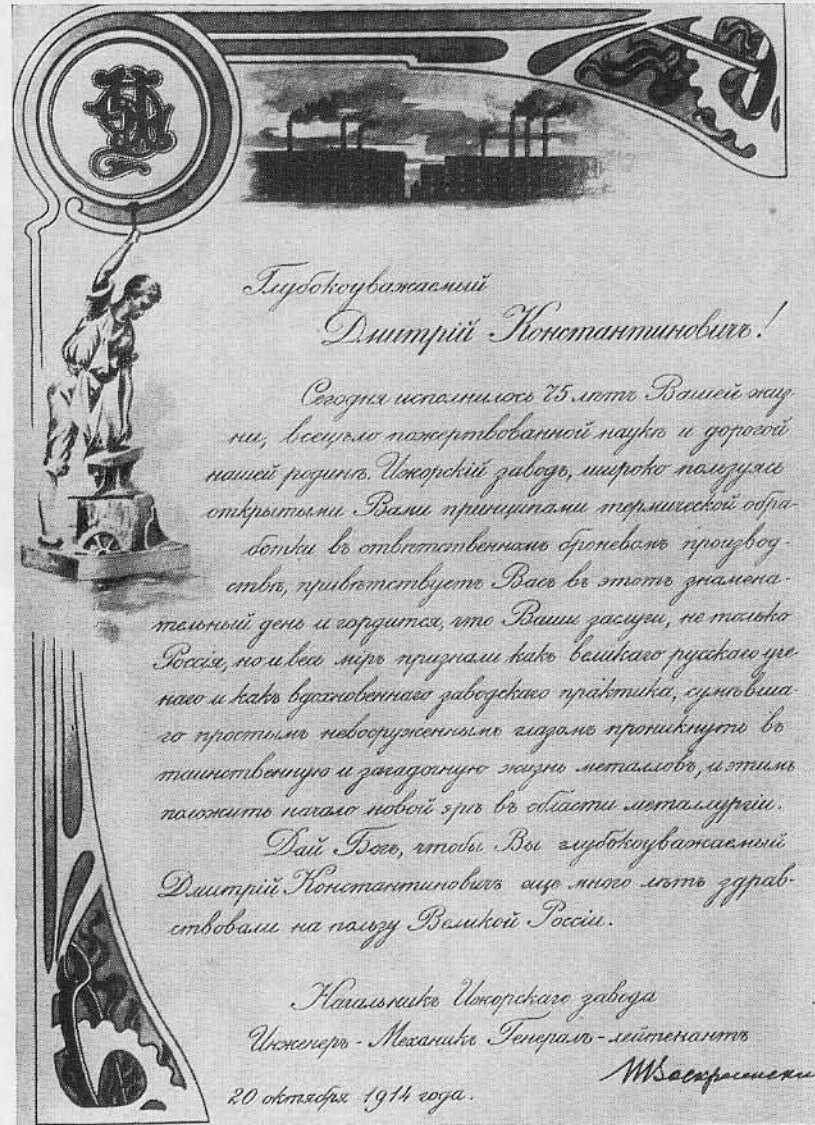 Глубокоуважаемый
Дмитрій Константиновичъ!
Сегодня исполнилось 75 лѣтъ Вашей жиз-
ни, всецѣло пожертвованной наукѣ и дорогой
нашей родинѣ. Ижорскій заводъ, широко пользуясь
открытыми Вами принципами термической обра-
ботки въ отвѣтственномъ броневомъ производ-
ствѣ, привѣтствуетъ Васъ въ этотъ знамена-
тельный день и гордится, что Ваши заслуги, не только
Россія, но и весь міръ признали какъ великаго русскаго уче-
наго и какъ вдохновеннаго заводскаго практика, сумѣвша-
го простымъ невооруженнымъ глазомъ проникнуть въ
таинственную и загадочную жизнь металловъ, и этимъ
положить начало новой эрѣ въ области металлургіи.
Дай Богъ, чтобы Вы глубокоуважаемый
Дмитрій Константиновичъ еще много лѣтъ здрав-
ствовали на пользу Великой Россіи.
Начальникъ Ижорскаго завода
Инженеръ-Механикъ Генералъ-лейтенантъ
20 октября 1914 года.